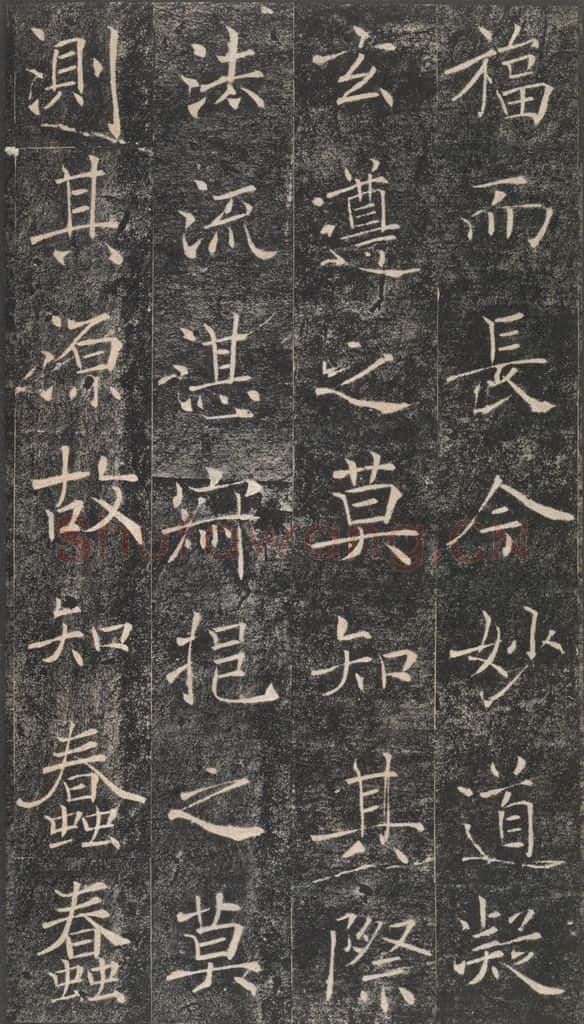 福而長今妙道凝
玄遵之莫知其際
法流湛寂挹之莫
測其源故知蠢蠢
shufawang.cn